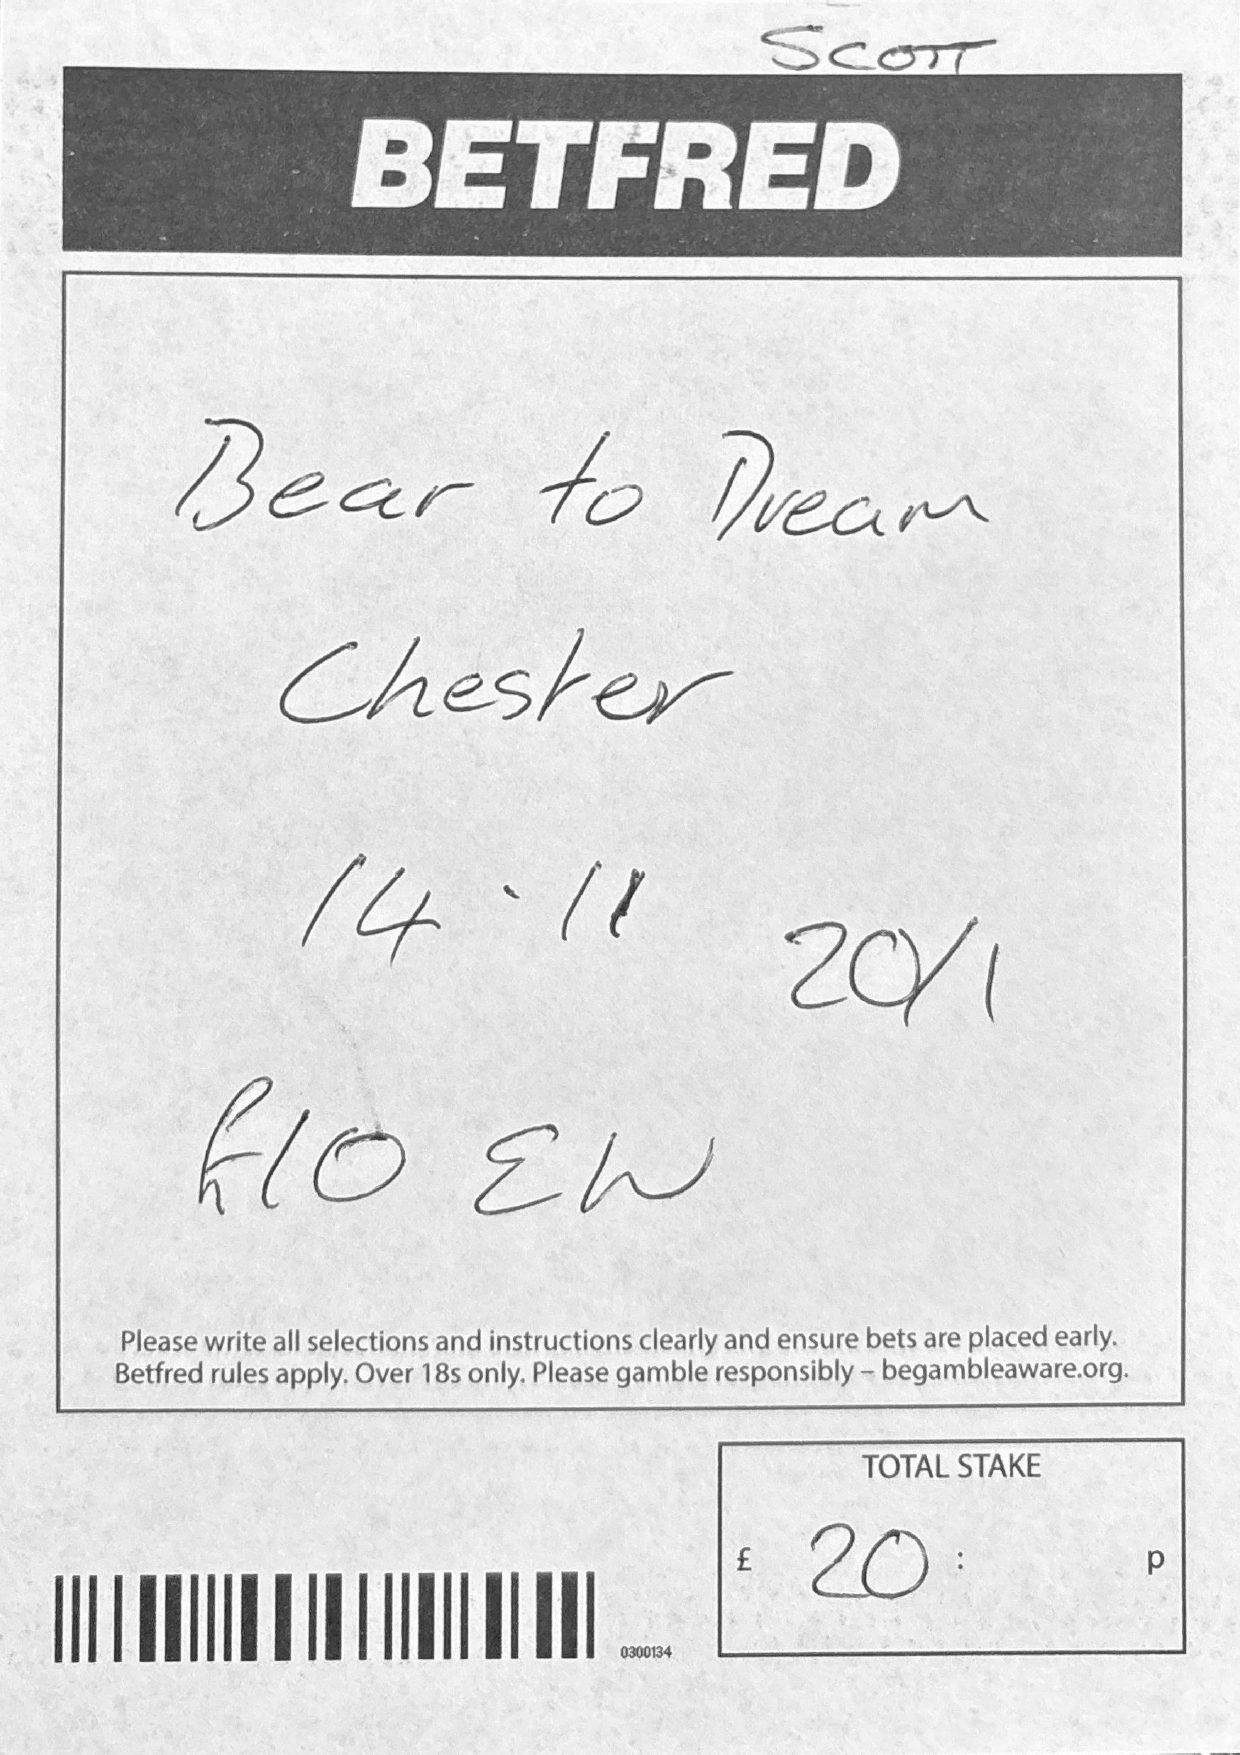 SCOTT
BETFRED
Bear to Dream
Chester
14.11
20/1
£10 EW
Please write all selections and instructions clearly and ensure bets are placed early.
Betfred rules apply. Over 18s only. Please gamble responsibly – begambleaware.org.
TOTAL STAKE
£ 20 : p
0300134